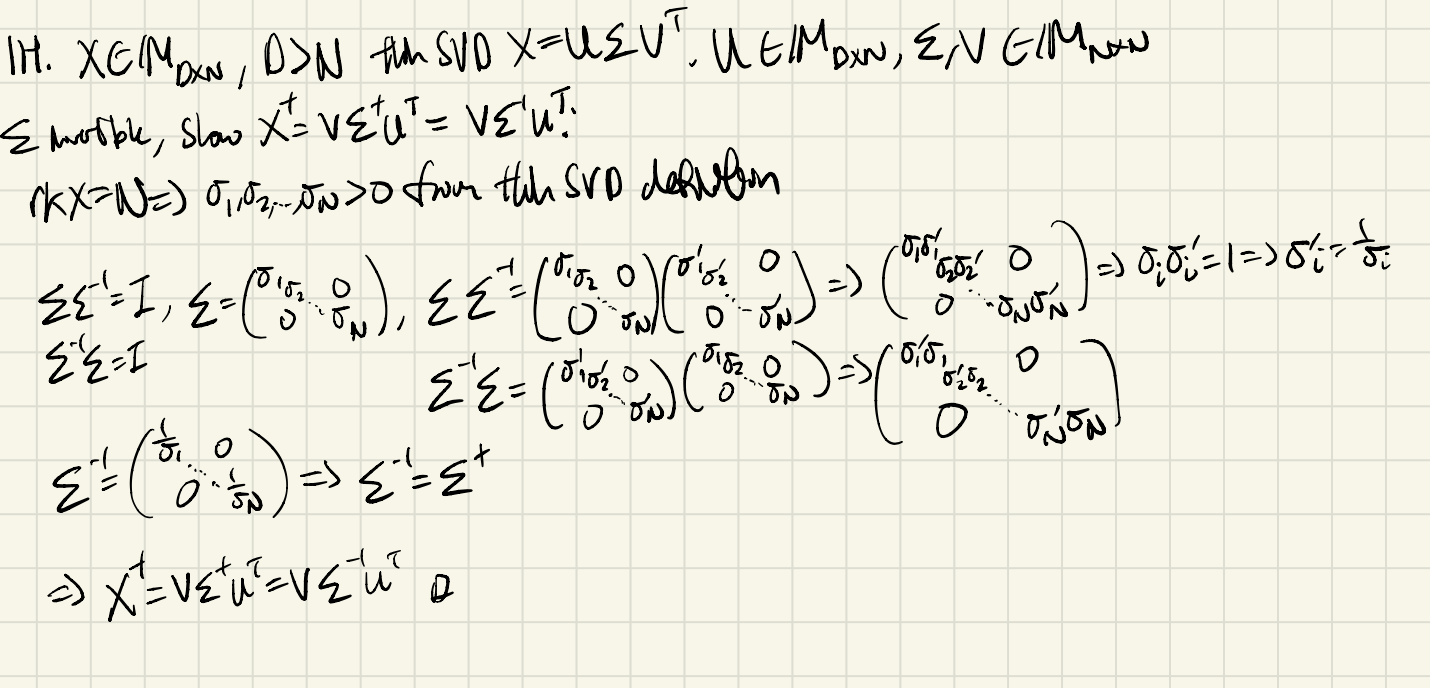 1H. X∈M_{D×N}, D>N thin SVD X=UΣV^T. U∈M_{D×N}, Σ,V ∈ M_{N×N}
Σ invertible, show X^+=VΣ^+U^T = VΣ^{-1}U^T.
rkX=N=> σ_1,σ_2,...,σ_N>0 from thin SVD definition
ΣΣ^{-1}=I, Σ=(σ_1 σ_2 ⋱ σ_N 0 0), ΣΣ^{-1}=(σ_1 σ_2 ⋱ σ_N 0 0)(σ_1' σ_2' ⋱ σ_N' 0 0) => (σ_1σ_1' σ_2σ_2' ⋱ σ_Nσ_N' 0 0) => σ_iσ_i'=1=>σ_i'=1/σ_i
Σ^{-1}Σ=I Σ^{-1}Σ=(σ_1' σ_2' ⋱ σ_N' 0 0)(σ_1 σ_2 ⋱ σ_N 0 0) => (σ_1'σ_1 σ_2'σ_2 ⋱ σ_N'σ_N 0 0)
Σ^{-1}=(1/σ_1 ⋱ 1/σ_N 0 0) => Σ^{-1}=Σ^+
=> X^+=VΣ^+U^T=VΣ^{-1}U^T □